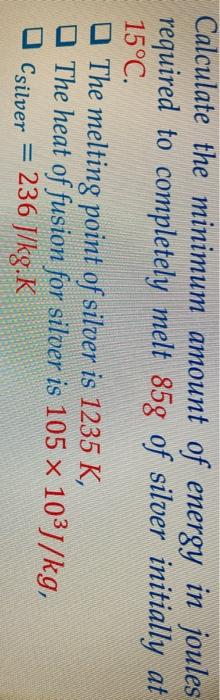 Calculate the minimum amount of energy in joules
required to completely melt 85g of silver initially at
15°C.
☐ The melting point of silver is 1235 K,
☐ The heat of fusion for silver is 105 × 10³J/kg,
☐ Csilver = 236 J/kg.K